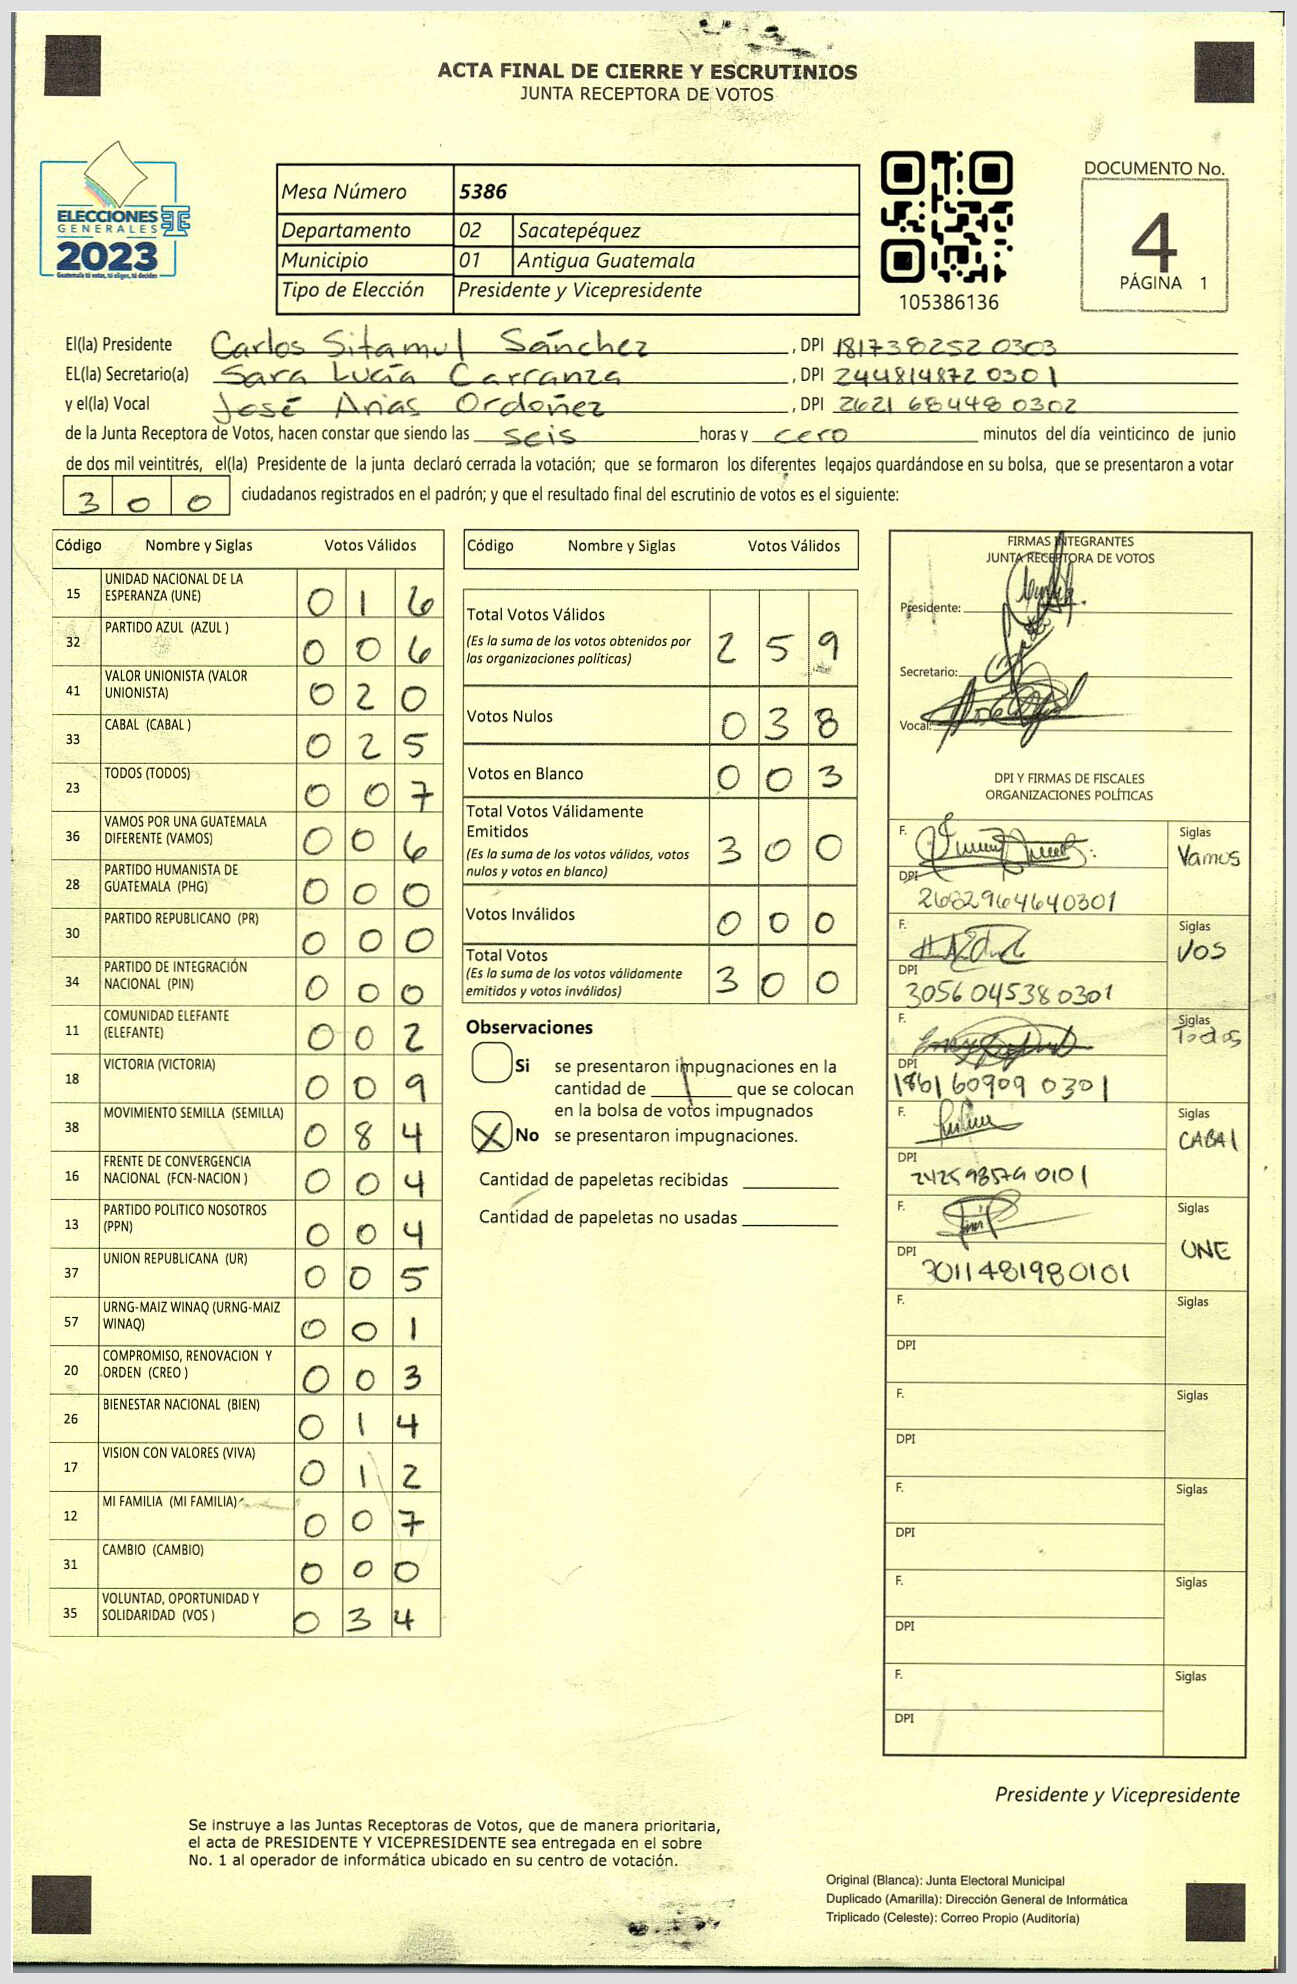 ACTA FINAL DE CIERRE Y ESCRUTINIOS
JUNTA RECEPTORA DE VOTOS
ELECCIONES
GENERALES
2023
Guatemala tú votas, tú eliges, tú decides
Mesa Número 5386
Departamento 02 Sacatepéquez
Municipio 01 Antigua Guatemala
Tipo de Elección Presidente y Vicepresidente
105386136
DOCUMENTO No.
4
PÁGINA 1
El(la) Presidente Carlos Sitamul Sánchez , DPI 181738252 0303
EL(la) Secretario(a) Sara Lucía Carranza , DPI 244814872 0301
y el(la) Vocal José Arias Ordoñez , DPI 2621 68448 0302
de la Junta Receptora de Votos, hacen constar que siendo las seis horas y cero minutos del día veinticinco de junio
de dos mil veintitrés, el(la) Presidente de la junta declaró cerrada la votación; que se formaron los diferentes legajos guardándose en su bolsa, que se presentaron a votar
300 ciudadanos registrados en el padrón; y que el resultado final del escrutinio de votos es el siguiente:
Código Nombre y Siglas Votos Válidos
15 UNIDAD NACIONAL DE LA
ESPERANZA (UNE) 0 1 6
32 PARTIDO AZUL (AZUL ) 0 0 6
41 VALOR UNIONISTA (VALOR
UNIONISTA) 0 2 0
33 CABAL (CABAL ) 0 2 5
23 TODOS (TODOS) 0 0 7
36 VAMOS POR UNA GUATEMALA
DIFERENTE (VAMOS) 0 0 6
28 PARTIDO HUMANISTA DE
GUATEMALA (PHG) 0 0 0
30 PARTIDO REPUBLICANO (PR) 0 0 0
34 PARTIDO DE INTEGRACIÓN
NACIONAL (PIN) 0 0 0
11 COMUNIDAD ELEFANTE
(ELEFANTE) 0 0 2
18 VICTORIA (VICTORIA) 0 0 9
38 MOVIMIENTO SEMILLA (SEMILLA) 0 8 4
16 FRENTE DE CONVERGENCIA
NACIONAL (FCN-NACION ) 0 0 4
13 PARTIDO POLITICO NOSOTROS
(PPN) 0 0 4
37 UNION REPUBLICANA (UR) 0 0 5
57 URNG-MAIZ WINAQ (URNG-MAIZ
WINAQ) 0 0 1
20 COMPROMISO, RENOVACION Y
ORDEN (CREO ) 0 0 3
26 BIENESTAR NACIONAL (BIEN) 0 1 4
17 VISION CON VALORES (VIVA) 0 1 2
12 MI FAMILIA (MI FAMILIA) 0 0 7
31 CAMBIO (CAMBIO) 0 0 0
35 VOLUNTAD, OPORTUNIDAD Y
SOLIDARIDAD (VOS ) 0 3 4
Código Nombre y Siglas Votos Válidos
Total Votos Válidos
(Es la suma de los votos obtenidos por
las organizaciones políticas) 2 5 9
Votos Nulos 0 3 8
Votos en Blanco 0 0 3
Total Votos Válidamente
Emitidos
(Es la suma de los votos válidos, votos
nulos y votos en blanco) 3 0 0
Votos Inválidos 0 0 0
Total Votos
(Es la suma de los votos válidamente
emitidos y votos inválidos) 3 0 0
Observaciones
Si se presentaron impugnaciones en la
cantidad de que se colocan
en la bolsa de votos impugnados
X No se presentaron impugnaciones.
Cantidad de papeletas recibidas
Cantidad de papeletas no usadas
FIRMAS INTEGRANTES
JUNTA RECEPTORA DE VOTOS
Presidente:
Secretario:
Vocal:
DPI Y FIRMAS DE FISCALES
ORGANIZACIONES POLÍTICAS
F. Siglas
Vamos
DPI
2682964640301
F. Siglas
VOS
DPI
3056 045380301
F. Siglas
Todos
DPI
1861 60909 0301
F. Siglas
CABAl
DPI
242598579 0101
F. Siglas
UNE
DPI
3011481980101
F. Siglas
DPI
F. Siglas
DPI
F. Siglas
DPI
F. Siglas
DPI
F. Siglas
DPI
Presidente y Vicepresidente
Se instruye a las Juntas Receptoras de Votos, que de manera prioritaria,
el acta de PRESIDENTE Y VICEPRESIDENTE sea entregada en el sobre
No. 1 al operador de informática ubicado en su centro de votación.
Original (Blanca): Junta Electoral Municipal
Duplicado (Amarilla): Dirección General de Informática
Triplicado (Celeste): Correo Propio (Auditoría)